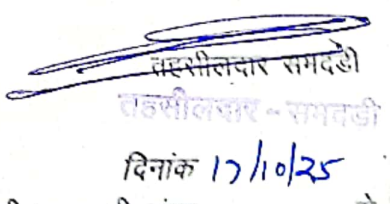 तहसीलदार समदडी
तहसीलदार - समदडी
दिनांक 17/10/25